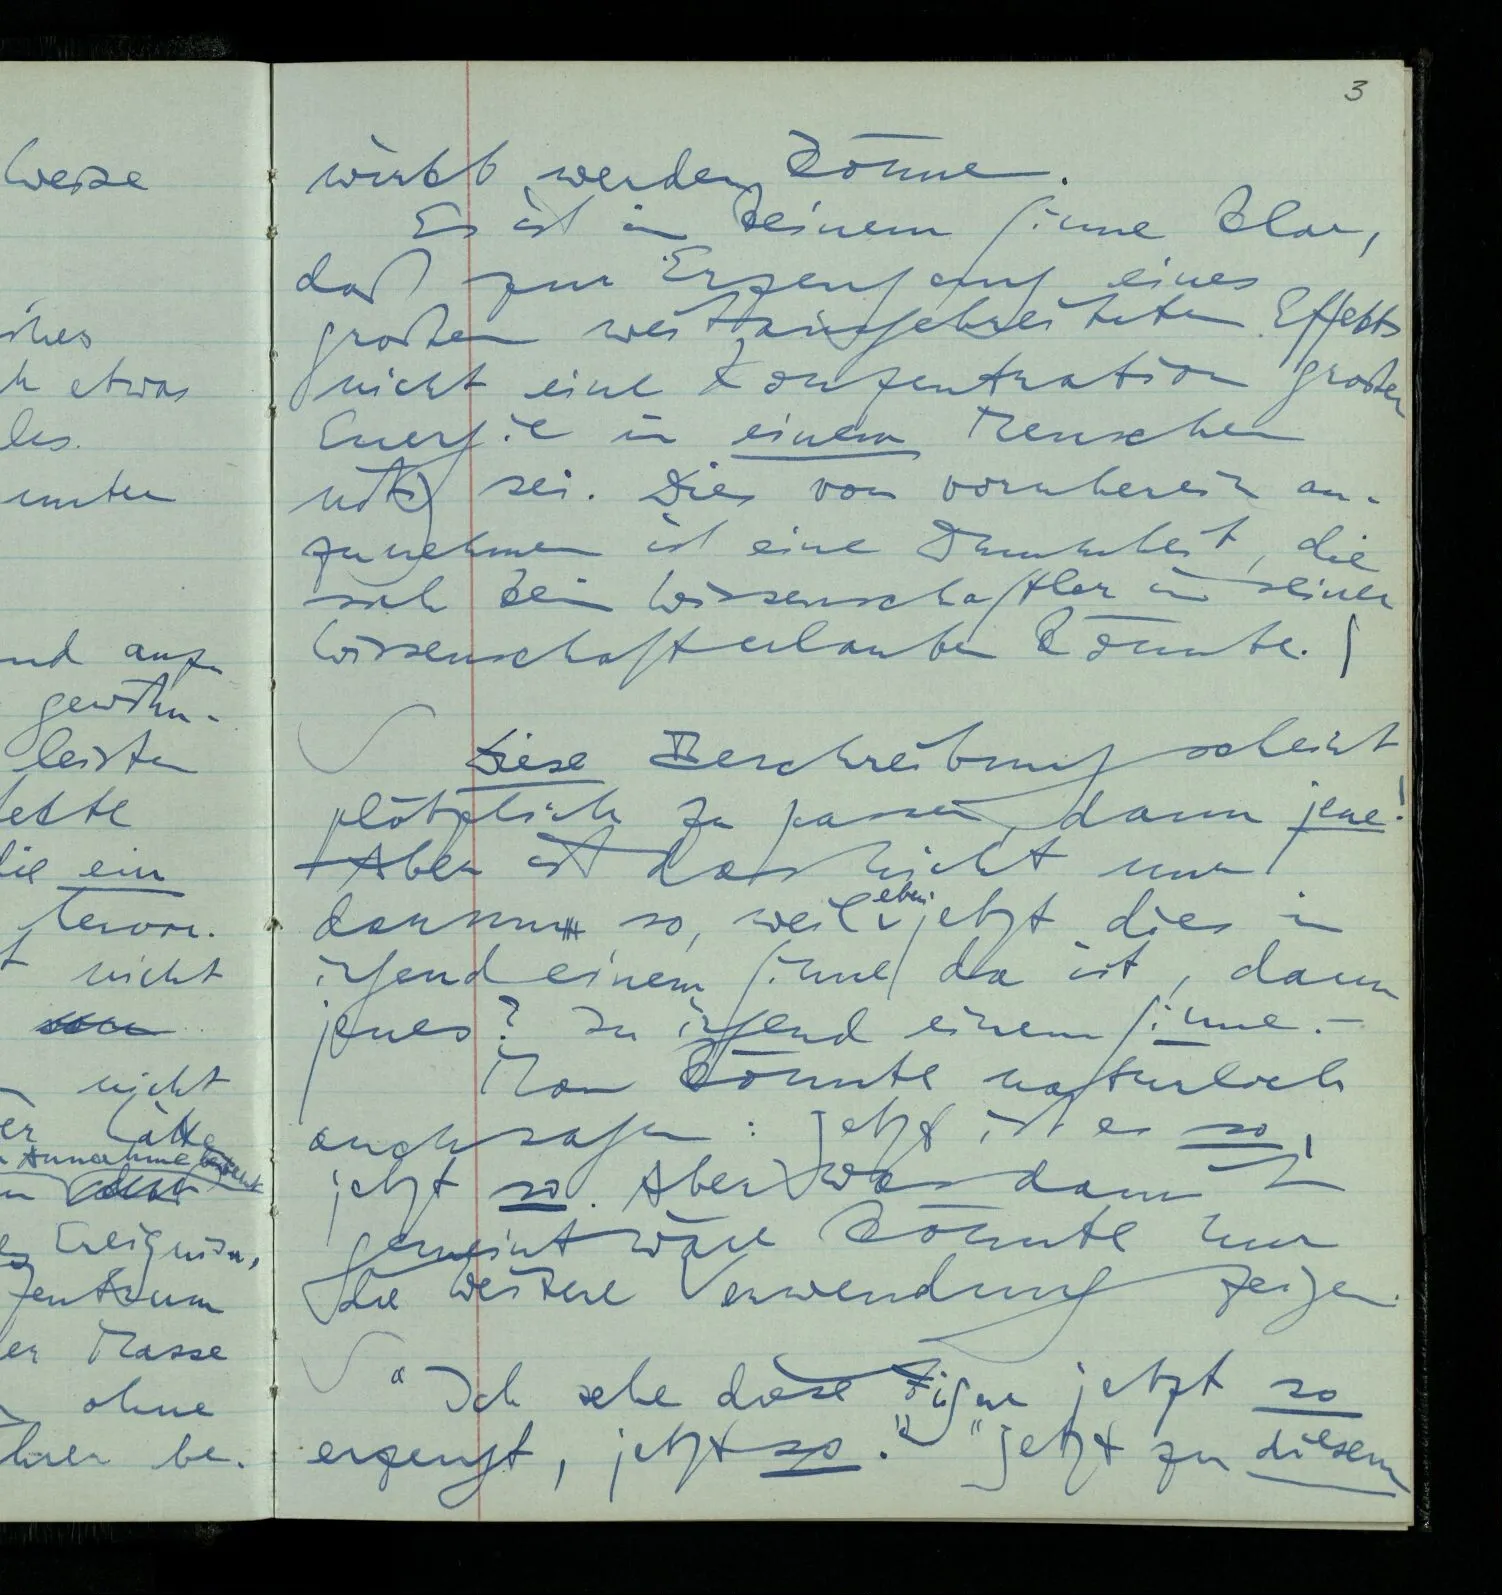 Weise
ches
h etwas
les.
unter
nd anzu
gewöhn-
leisten
die ein
hervor.
nicht
nicht
er hätte
Annahme
Ereignisse,
Zentrum
er Masse
ohne
hrer be-
3
wirkt werden könne.
Es ist in keinem Sinne klar,
daß zur Erzeugung eines
großen weitausgebreiteten Effekts
nicht eine Konzentration großer
Energie in einem Menschen
nötig sei. Dies von vornherein an-
zunehmen ist eine Dummheit, die
sich kein Wissenschaftler in seiner
Wissenschaft erlauben könnte. ∫
Diese Beschreibung scheint
plötzlich zu passen, dann jene!
Aber ist das nicht nur
darum so, weil eben jetzt dies in
irgend einem Sinne da ist, dann
jenes? In irgend einem Sinne. –
Man könnte natürlich
auch sagen: jetzt ist es so,
jetzt so. Aber was damit
gemeint wäre könnte nur
die weitere Verwendung zeigen.
"Ich sehe diese Figur jetzt so
erzeugt, jetzt so." "Jetzt zu diesem